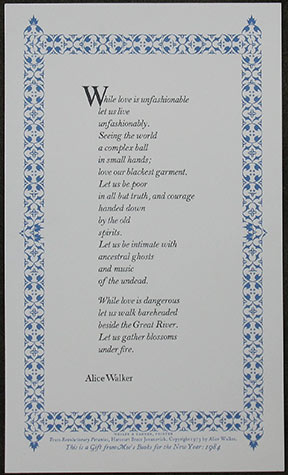 While love is unfashionable
let us live
unfashionably.
Seeing the world
a complex ball
in small hands;
love our blackest garment.
Let us be poor
in all but truth, and courage
handed down
by the old
spirits.
Let us be intimate with
ancestral ghosts
and music
of the undead.
While love is dangerous
let us walk bareheaded
beside the Great River.
Let us gather blossoms
under fire.
Alice Walker
From Revolutionary Petunias, Harcourt Brace Jovanovich, Copyright 1973 by Alice Walker.
This is a Gift from Moe's Books for the New Year: 1984